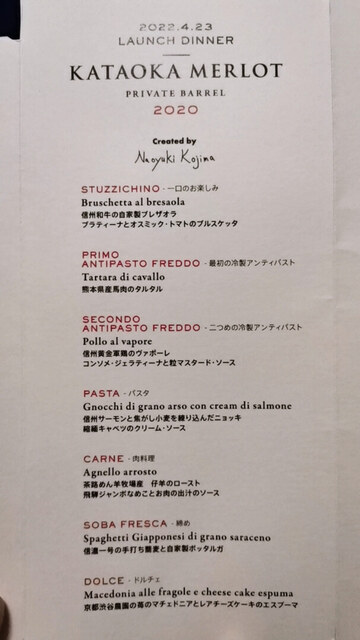 2022.4.23
LAUNCH DINNER
KATAOKA MERLOT
PRIVATE BARREL
2020
Created by
Naoyuki Kojima
STUZZICHINO - 一口のお楽しみ
Bruschetta al bresaola
信州和牛の自家製ブレザオラ
ブラティーナとオスミック・トマトのブルスケッタ
PRIMO
ANTIPASTO FREDDO - 最初の冷製アンティパスト
Tartara di cavallo
熊本県産馬肉のタルタル
SECONDO
ANTIPASTO FREDDO - 二つめの冷製アンティパスト
Pollo al vapore
信州黄金軍鶏のヴァポーレ
コンソメ・ジェラティーナと粒マスタード・ソース
PASTA - パスタ
Gnocchi di grano arso con cream di salmone
信州サーモンと焦がし小麦を練り込んだニョッキ
縮緬キャベツのクリーム・ソース
CARNE - 肉料理
Agnello arrosto
茶路めん羊牧場産 仔羊のロースト
飛騨ジャンボなめことお肉の出汁のソース
SOBA FRESCA - 締め
Spaghetti Giapponesi di grano saraceno
信濃一号の手打ち蕎麦と自家製ボッタルガ
DOLCE - ドルチェ
Macedonia alle fragole e cheese cake espuma
京都渋谷農園の苺のマチェドニアとレアチーズケーキのエスプーマ